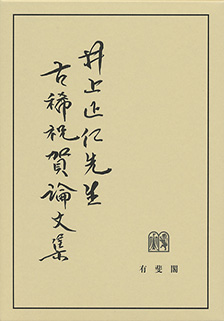 井上正仁先生
古稀祝賀論文集
有斐閣